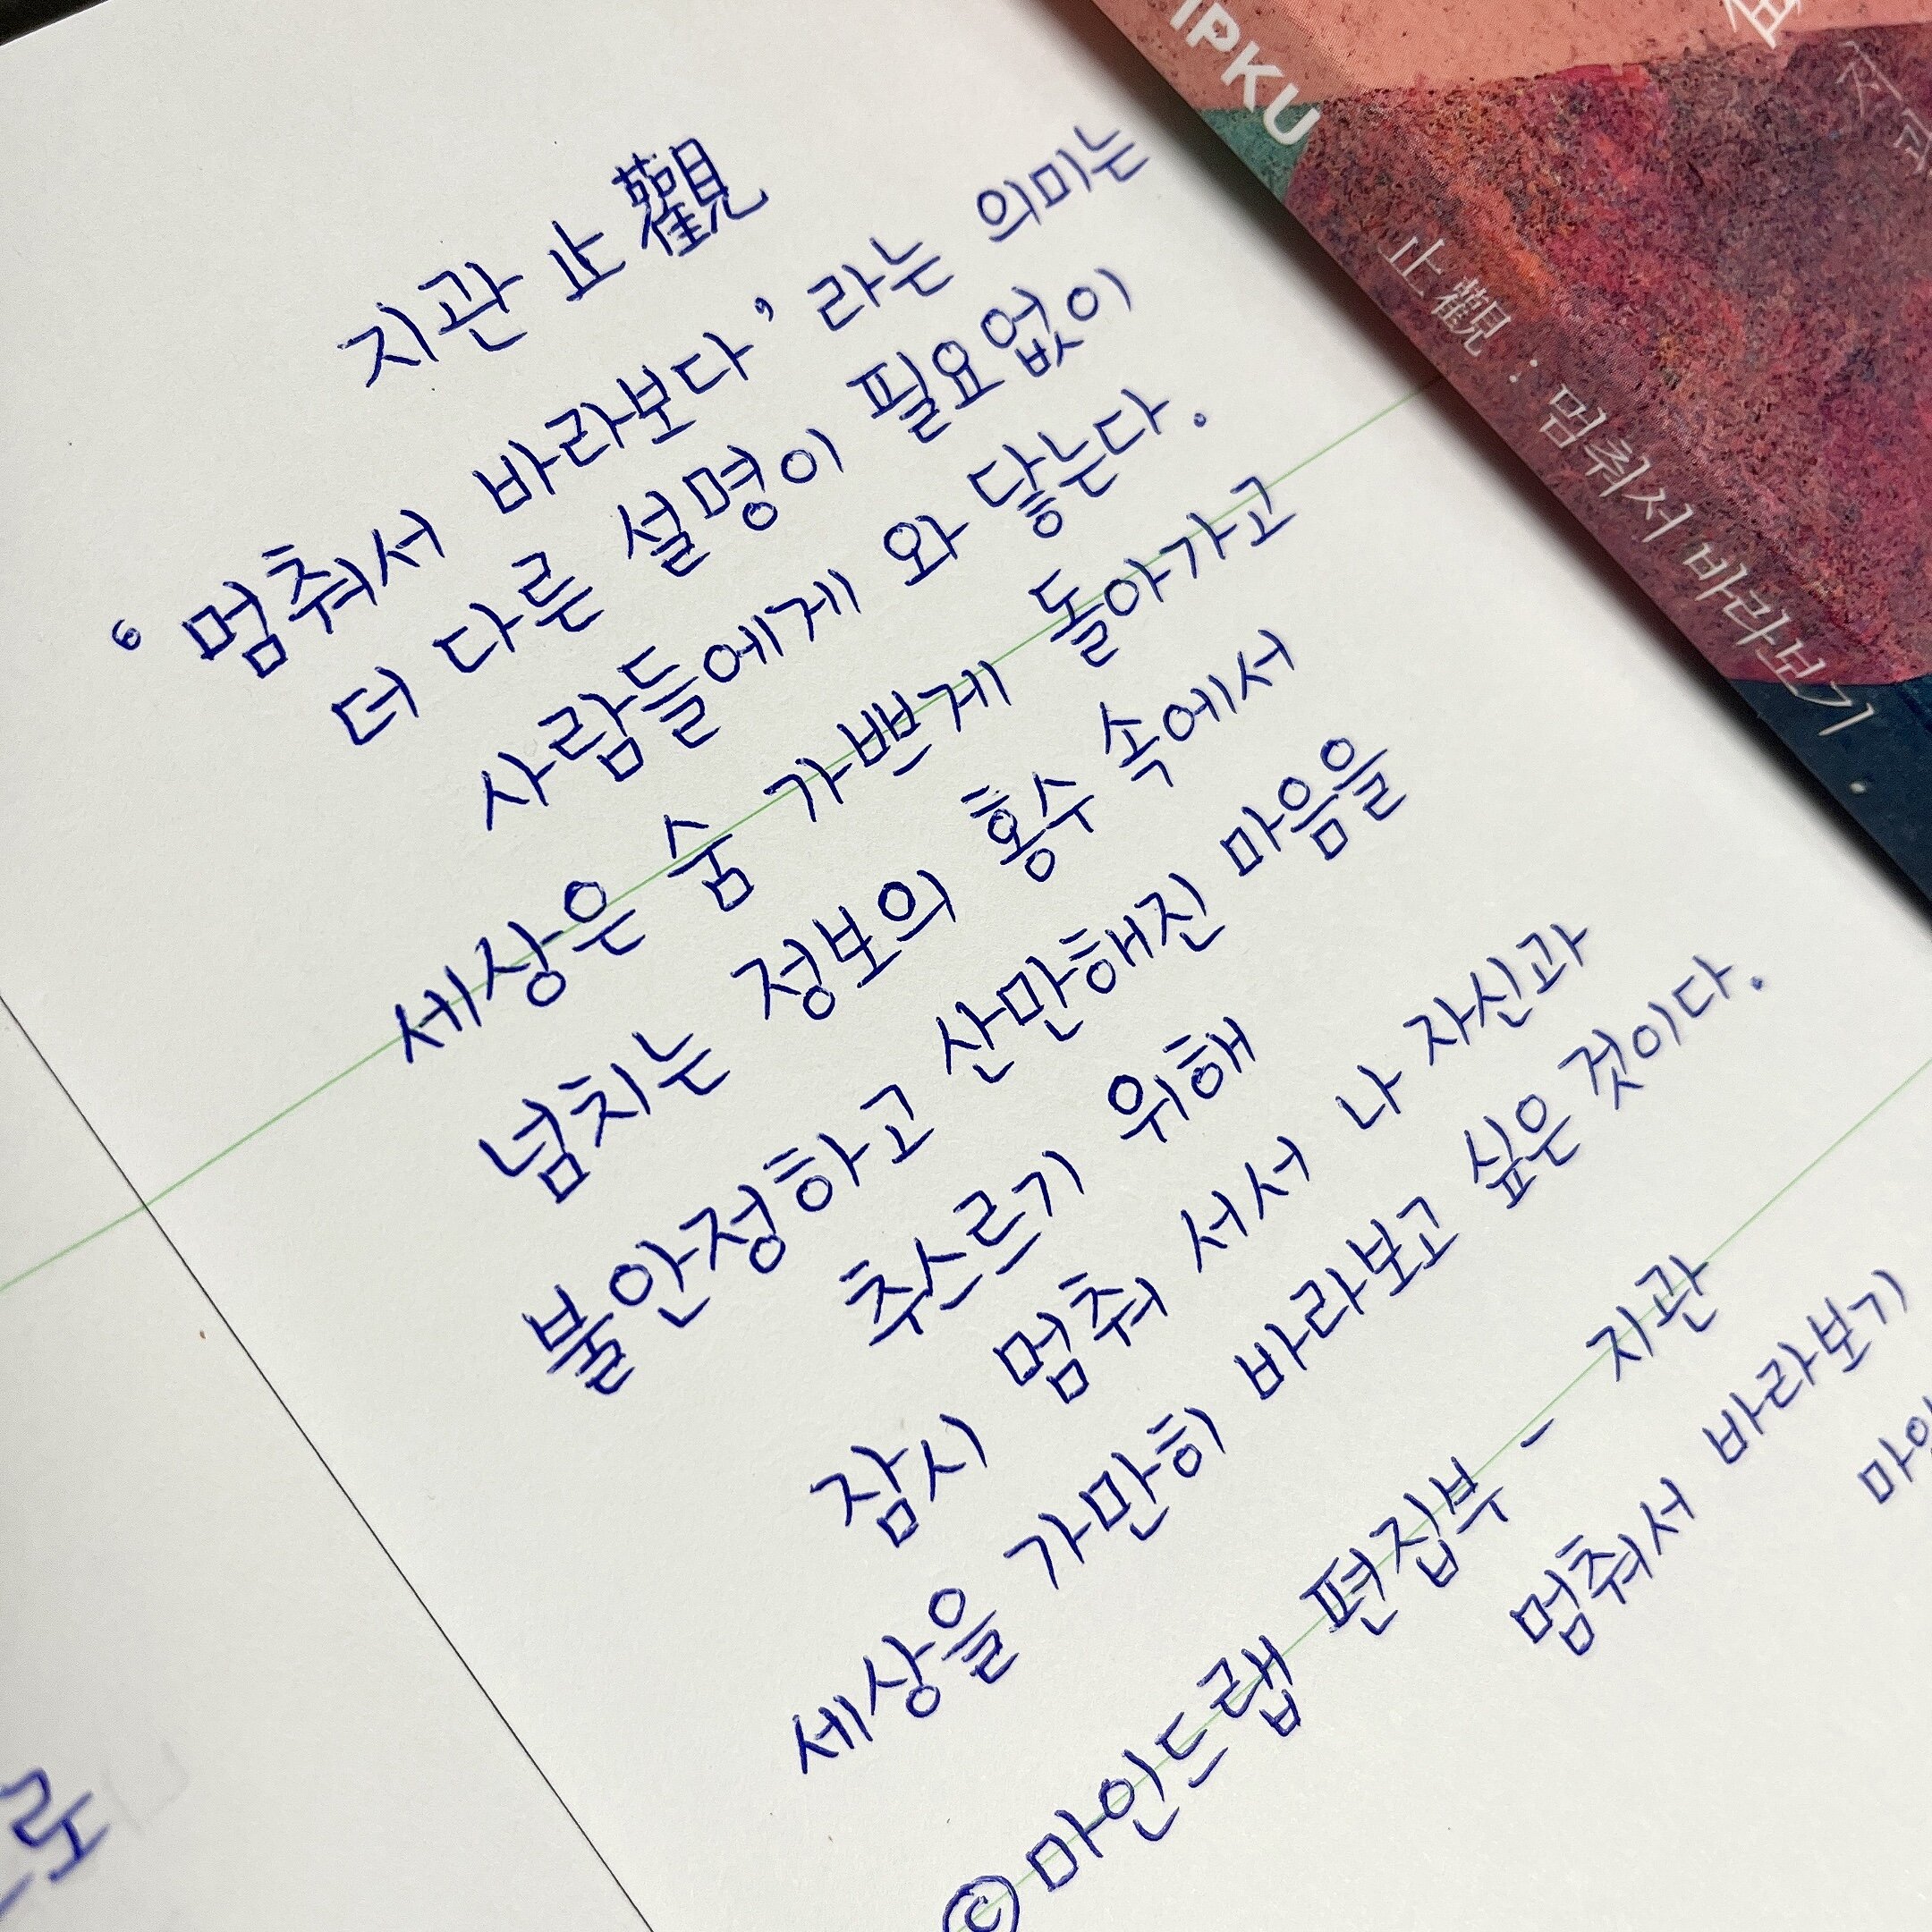 지관 止觀
‘멈춰서 바라보다’라는 의미는
더 다른 설명이 필요없이
사람들에게 와 닿는다.
세상은 숨 가쁘게 돌아가고
넘치는 정보의 홍수 속에서
불안정하고 산만해진 마음을
추스르기 위해
잠시 멈춰 서서 나 자신과
세상을 가만히 바라보고 싶은 것이다.
ⓒ마인드랩 편집부 - 지관
멈춰서 바라보기
IPKU
止觀 : 멈춰서 바라보기
로